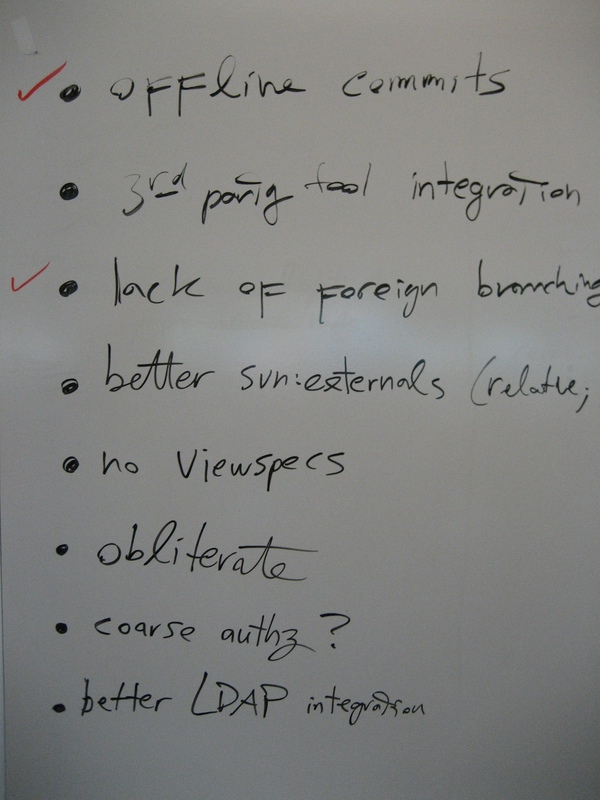 • offline commits
• 3rd party tool integration
• lack of foreign branching
• better svn:externals (relative;
• no viewspecs
• obliterate
• coarse authz?
• better LDAP integration